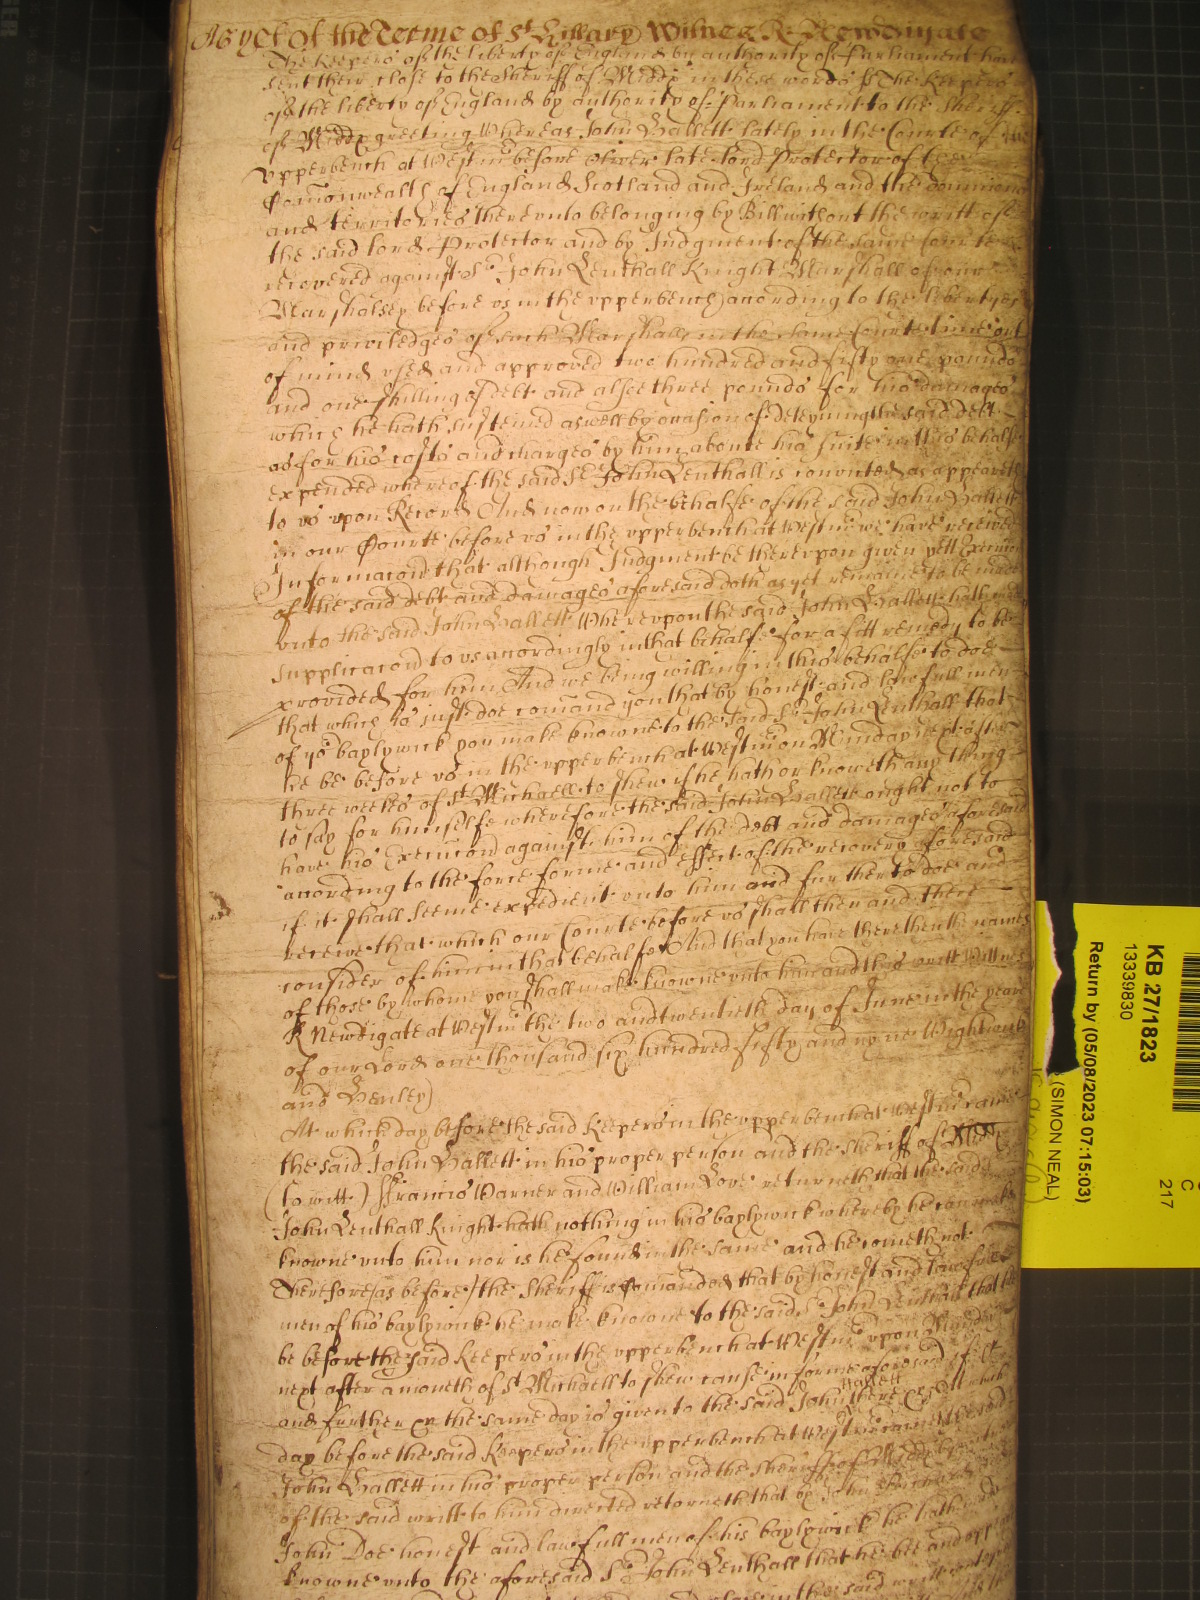 As yet of the Terme of St Hillary Witnes R: Newdigate
The Keepers of the liberty of England by authority of Parliament have
sent their close to the Sheriff of Middx in these words ss The Keepers
of the liberty of England by authority of Parliament to the Sheriff
of Middx greeting Whereas John Hallett lately in the Courte of the
vpperbench at Westmr before Oliver late lord Protector of the
Comonwealth of England Scotland and Ireland and the dominions
and territories therevnto belonging by Bill without the writt of
the said lord Protector and by Judgment of the same Courte
recovered against Sr John Lenthall Knight Marshall of our
Marshalsey before vs in the vpperbench according to the libertyes
and priviledges of such Marshalls in the same Courte time out
of mind vsed and approved two hundred and fifty one pounds
and one shilling of debt and alsoe three pounds for his damages
which he hath susteined aswell by occasion of deteyning the said debt
as for his costs and charges by him aboute his suite in this behalfe
expended whereof the said Sr John Lenthall is convicted as appeareth
to vs vpon Record And now on the behalfe of the said John Hallett
in our Courte before vs in the vpperbench at Westmr we have received
Informacon that although Judgment be therevpon given yett Execucon
of the said debt and damages aforesaid doth as yet remaine to be made
vnto the said John Hallett Wherevpon the said John Hallett hath made
supplicacon to vs accordingly in that behalfe for a fitt remedy to be
provided for him And we being willing in this behalfe to doe
that which is just doe comand you that by honest and lawfull men
of yor baylywick you make knowne to the said Sr John Lenthall that
he be before vs in the vpperbench at Westmr on Munday next after
three weekes of St Michaell to shew if he hath or knoweth any thing
to say for himselfe wherefore the said John Hallett ought not to
have his Execucon against him of the debt and damages aforesaid
according to the force forme and effect of the recovery aforesaid
if it shall seeme expedient vnto him and further to doe and
receive that which our Courte before vs shall then and there
consider of him in that behalfe And that you have there then the names
of those by whome you shall make knowne vnto him and this writt Wittnes
R Newdigate at Westmr the two and twentieth day of June in the yeare
of our Lord one thousand six hundred fifty and nyne Wightwick
and Henley
At which day before the said Keepers in the vpperbench at Westmr came
the said John Hallett in his proper person and the Sheriff of Middx
(to witt) Francis Warner and William Love returneth that the said Sr
John Lenthall Knight hath nothing in his baylywick whereby he can make
knowne vnto him nor is he found in the same and he cometh not
Therefore (as before) the Sheriff is comanded that by honest and lawfull
men of his baylywick he make knowne to the said Sr John Lenthall that he
be before the said Keepers in the vpperbench at Westmr vpon Munday
next after a moneth of St Michaell to shew cause in forme aforesaid if &c
and further &c the same day is given to the said John Hallett there &c At which
day before the said Keepers in the vpperbench at Westmr came the said
John Hallett in his proper person and the Sheriff of
of the said writt to him directed returneth that by John
John Doe honest and lawfull men of his baylywick he hath made
knowne vnto the aforesaid Sr John Lenthall that he bee and
in the said writt
KB 27/1823
13339830
Return by (05/08/2023 07:15:03)
(SIMON NEAL)
C
217